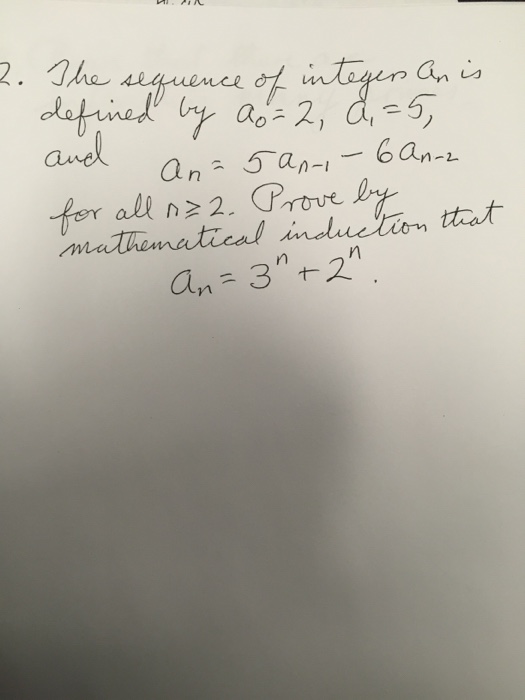 2. The sequence of integers aₙ is
defined by a₀ = 2, a₁ = 5,
and aₙ = 5aₙ₋₁ − 6aₙ₋₂
for all n ≥ 2. Prove by
mathematical induction that
aₙ = 3ⁿ + 2ⁿ.